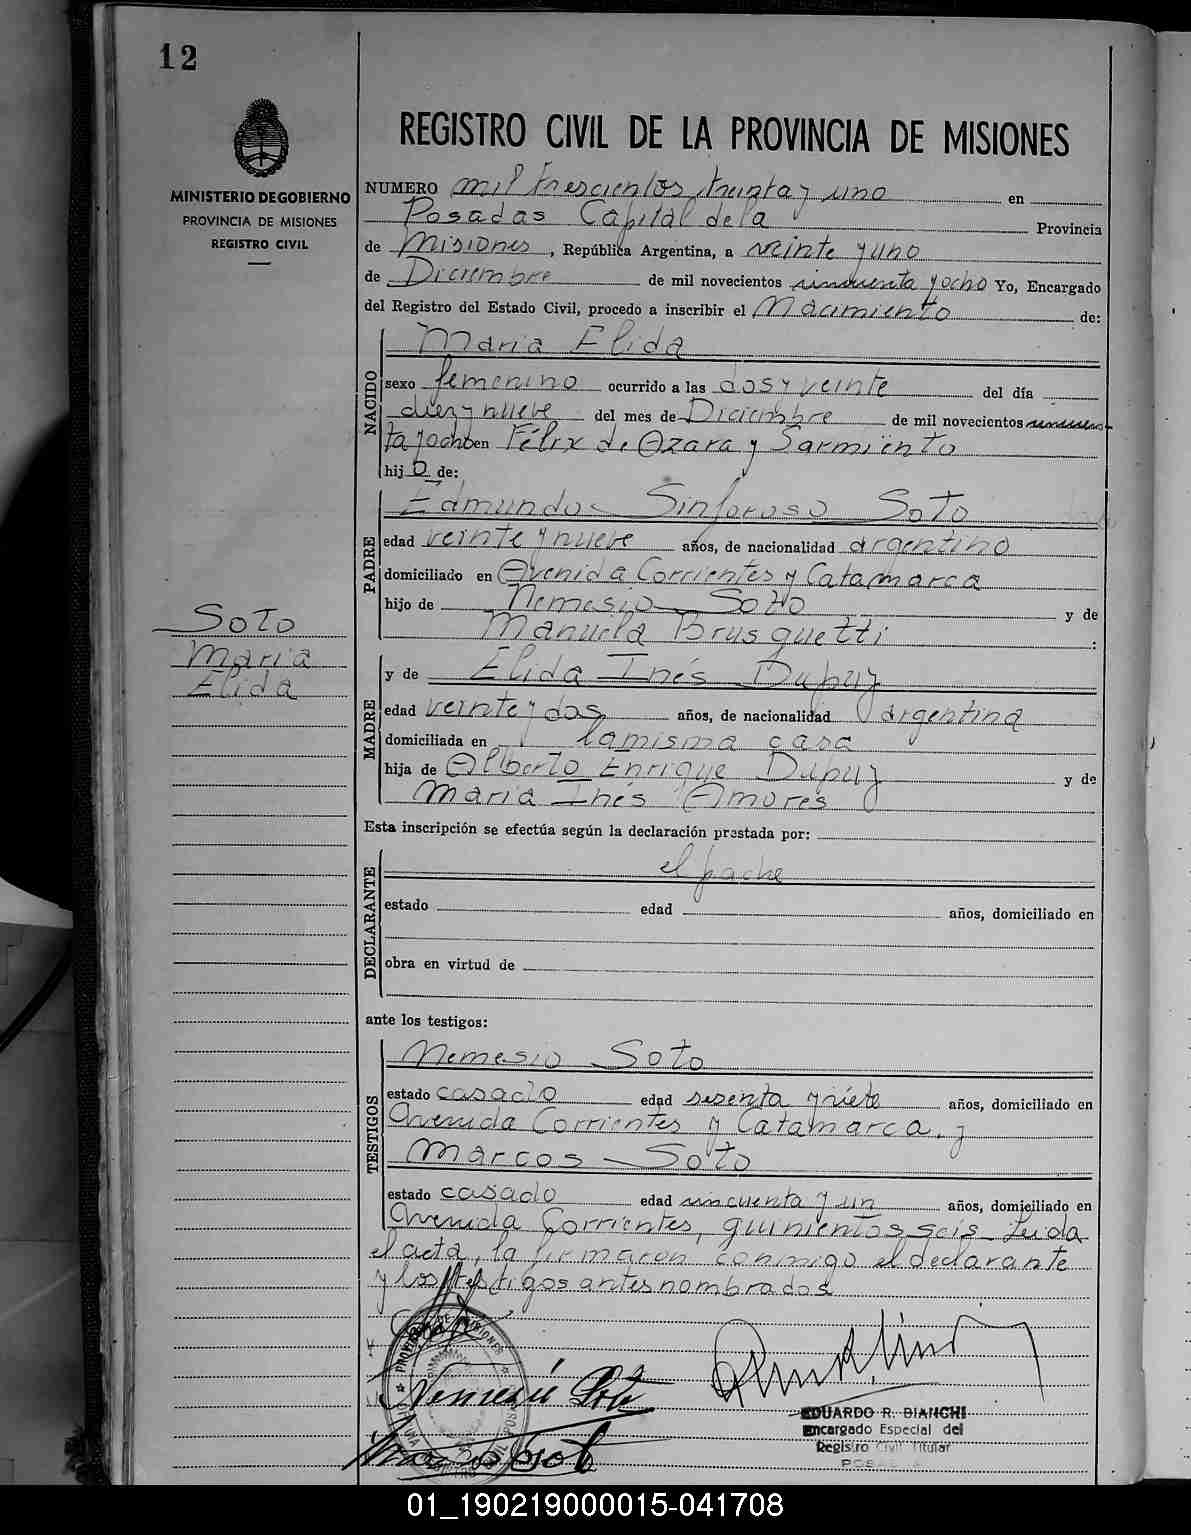 12
REGISTRO CIVIL DE LA PROVINCIA DE MISIONES
MINISTERIO DE GOBIERNO
PROVINCIA DE MISIONES
REGISTRO CIVIL
NUMERO mil trescientos treinta y uno en
Posadas Capital de la Provincia
de Misiones, República Argentina, a veinte y uno
de Diciembre de mil novecientos sincuenta y ocho Yo, Encargado
del Registro del Estado Civil, procedo a inscribir el Nacimiento de:
NACIDO
Maria Elida
sexo femenino ocurrido a las dos y veinte del día
diez y nueve del mes de Diciembre de mil novecientos sincuen-
ta y ocho en Félix de Azara y Sarmiento
hij a de:
PADRE
Edmundo Sinforoso Soto
edad veinte y nueve años, de nacionalidad argentino
domiciliado en Avenida Corrientes y Catamarca
hijo de Nemesio Soto y de
Manuela Brusquetti :
Soto
Maria
Elida
MADRE
y de Elida Inés Dupuy
edad veinte y dos años, de nacionalidad argentina
domiciliada en la misma casa
hija de Alberto Enrique Dupuy y de
Maria Inés Amores
Esta inscripción se efectúa según la declaración prestada por:
DECLARANTE
el padre
estado edad años, domiciliado en
obra en virtud de
ante los testigos:
TESTIGOS
Nemesio Soto
estado casado edad sesenta y siete años, domiciliado en
Avenida Corrientes y Catamarca. y
Marcos Soto
estado casado edad sincuenta y un años, domiciliado en
Avenida Corrientes, quinientos seis Leida
el acta, la firmaron conmigo el declarante
y los testigos antes nombrados
Nemesio Soto
Marcos Soto
EDUARDO R. BIANCHI
Encargado Especial del
Registro Civil Titular
POSADAS
01_190219000015-041708